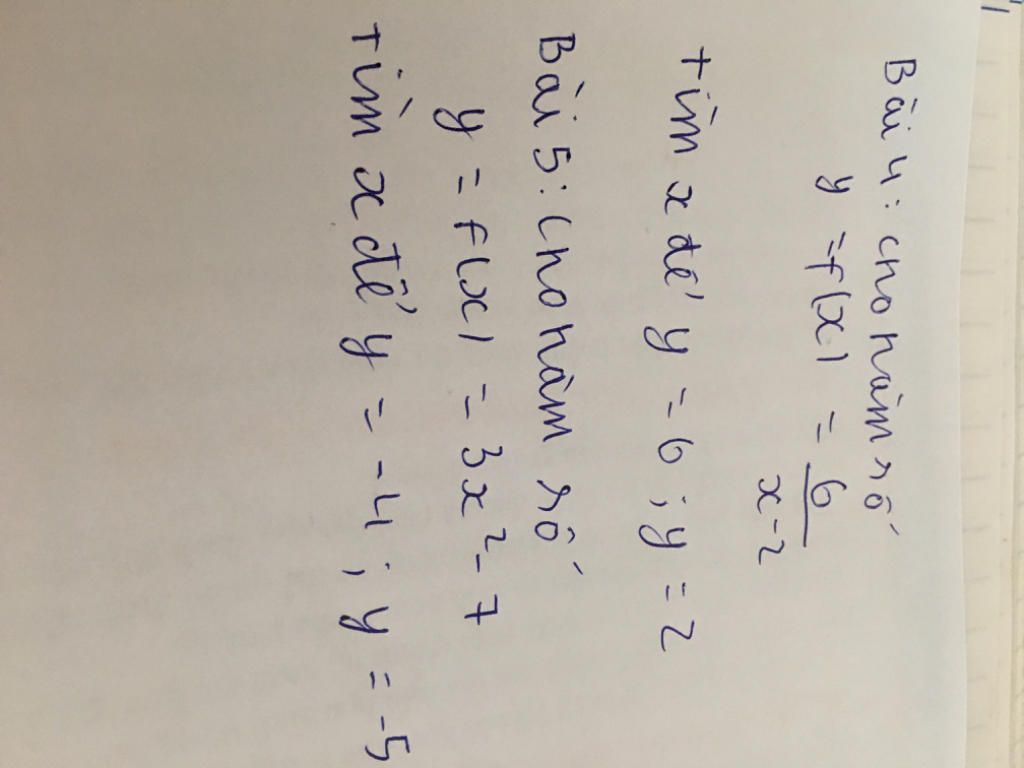 Bài 4: cho hàm số
y = f(x) = 6/(x-2)
tìm x để y = 6; y = 2
Bài 5: Cho hàm số
y = f(x) = 3x² - 7
tìm x để y = -4; y = -5